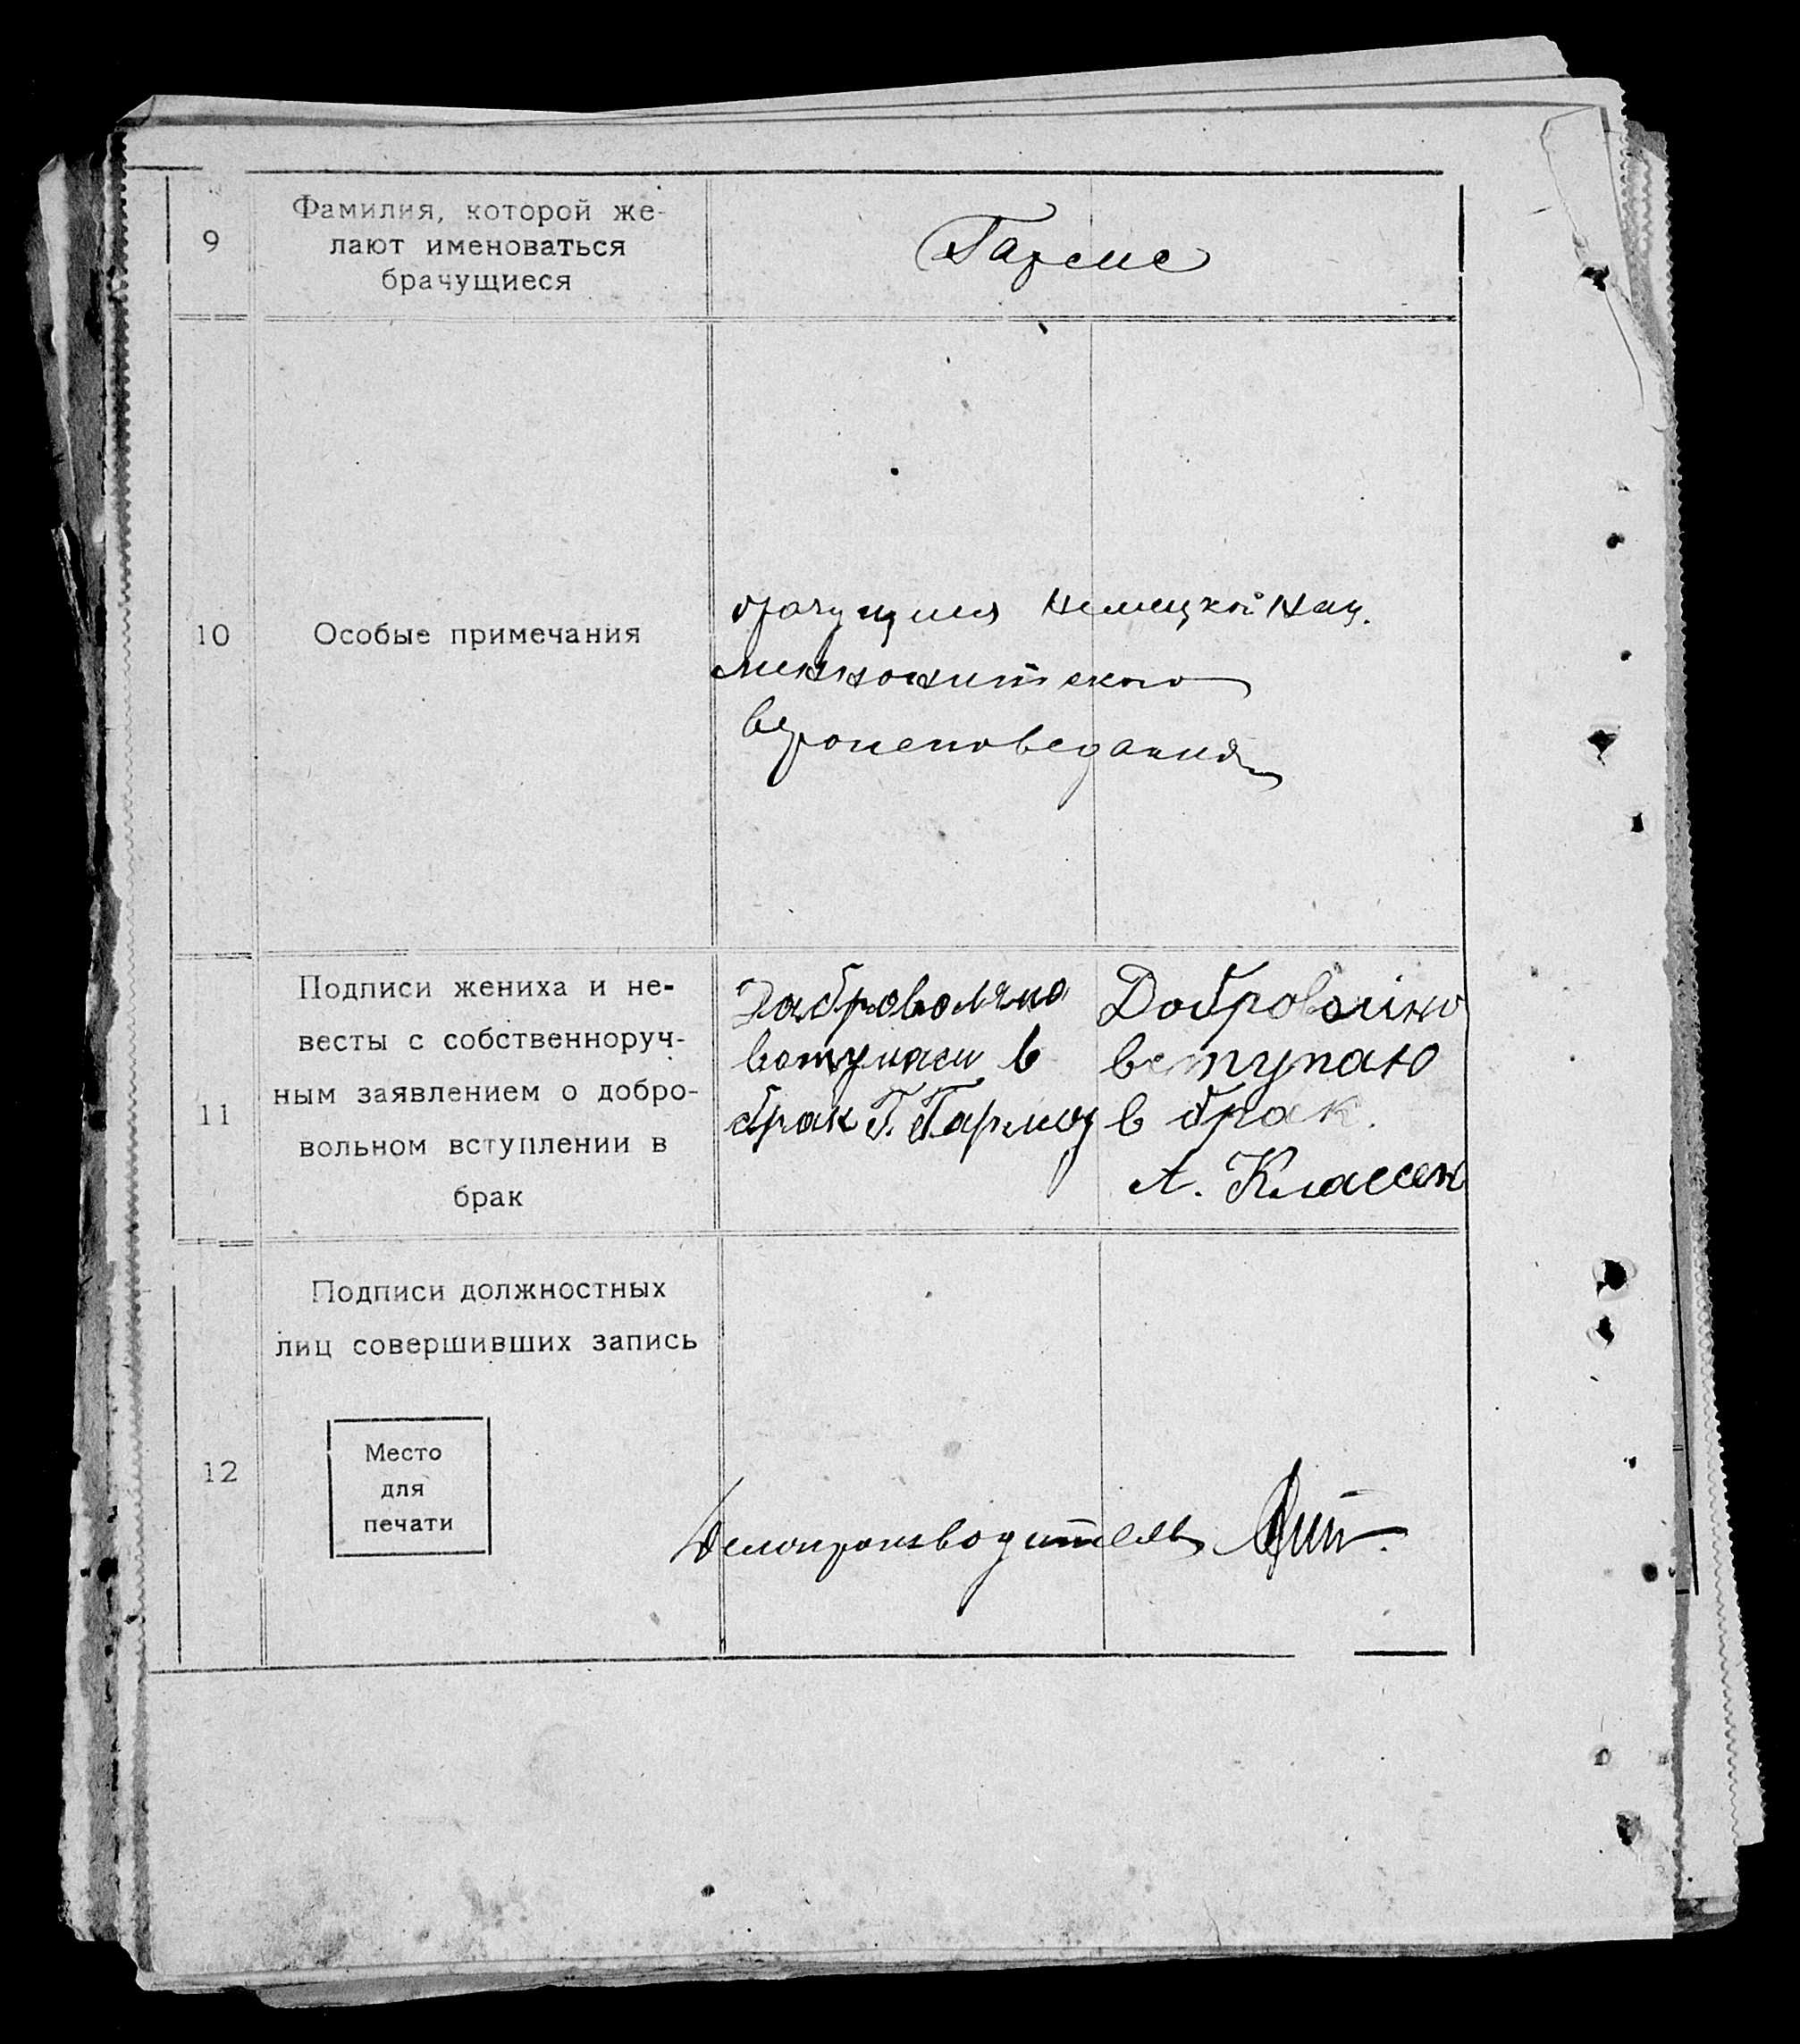 9
Фамилия, которой же-
лают именоваться
брачущиеся
Гармс
10
Особые примечания
брачущиеся немецкой нац.
меннонитского
вероисповедания
11
Подписи жениха и не-
весты с собственноруч-
ным заявлением о добро-
вольном вступлении в
брак
в
брак Г. Гармс
Добровольно
вступаю
в брак.
А. Классен
12
Подписи должностных
лиц совершивших запись
Место
для
печати
Делопроизводитель